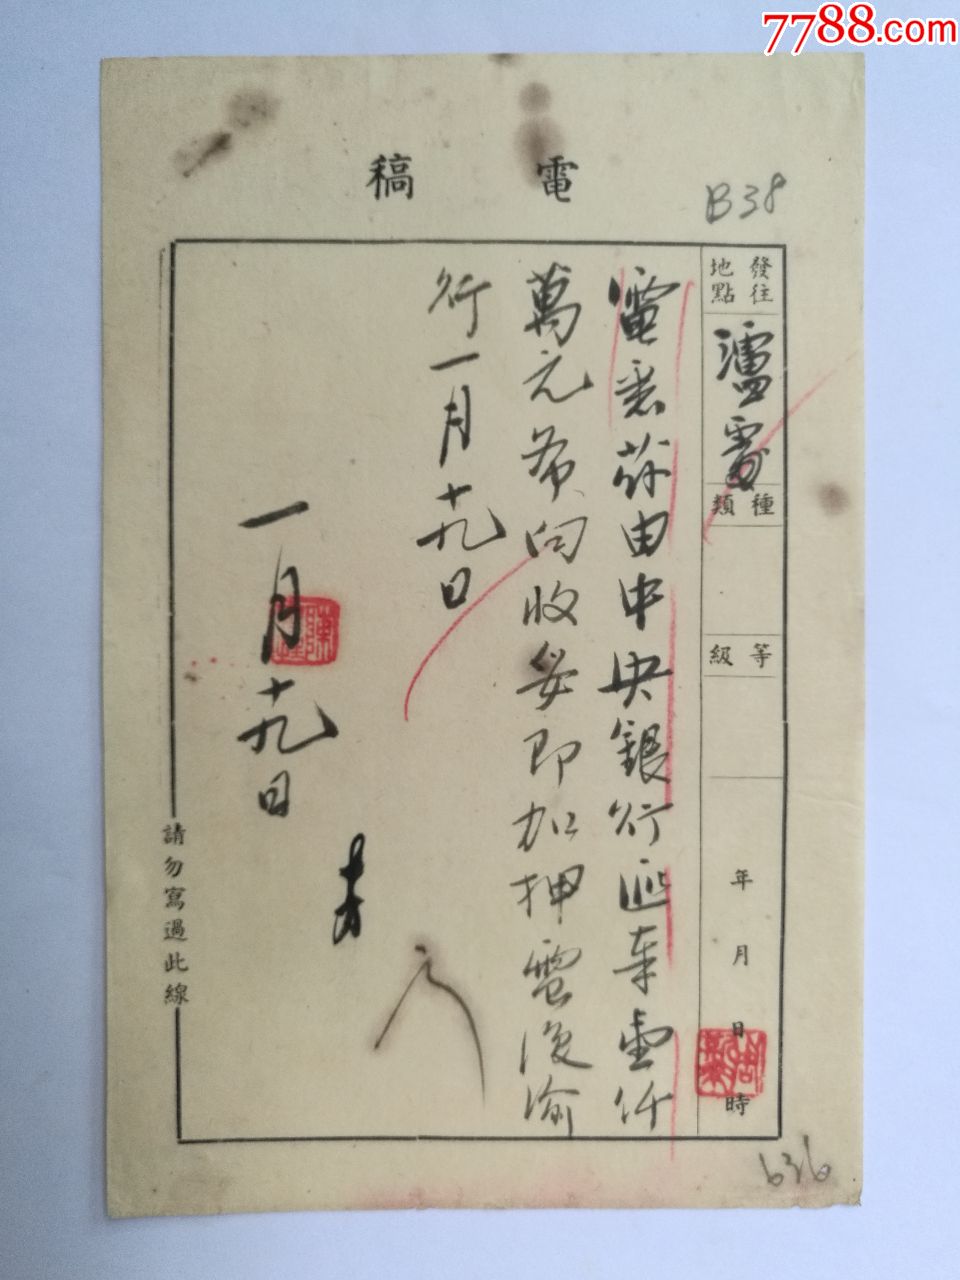 7788.com
電稿
B38
發往地點
瀘處
種類
等級
年月日時
電悉茲由中央銀行匯奉壹仟
萬元希向收妥即加押電復渝
行一月十九日
一月十九日
請勿寫過此線
636